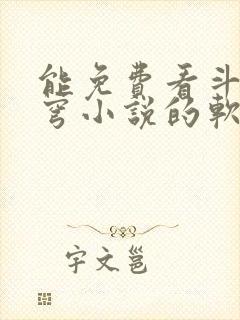 能免費看斗
穹小說的軟
宇文邕